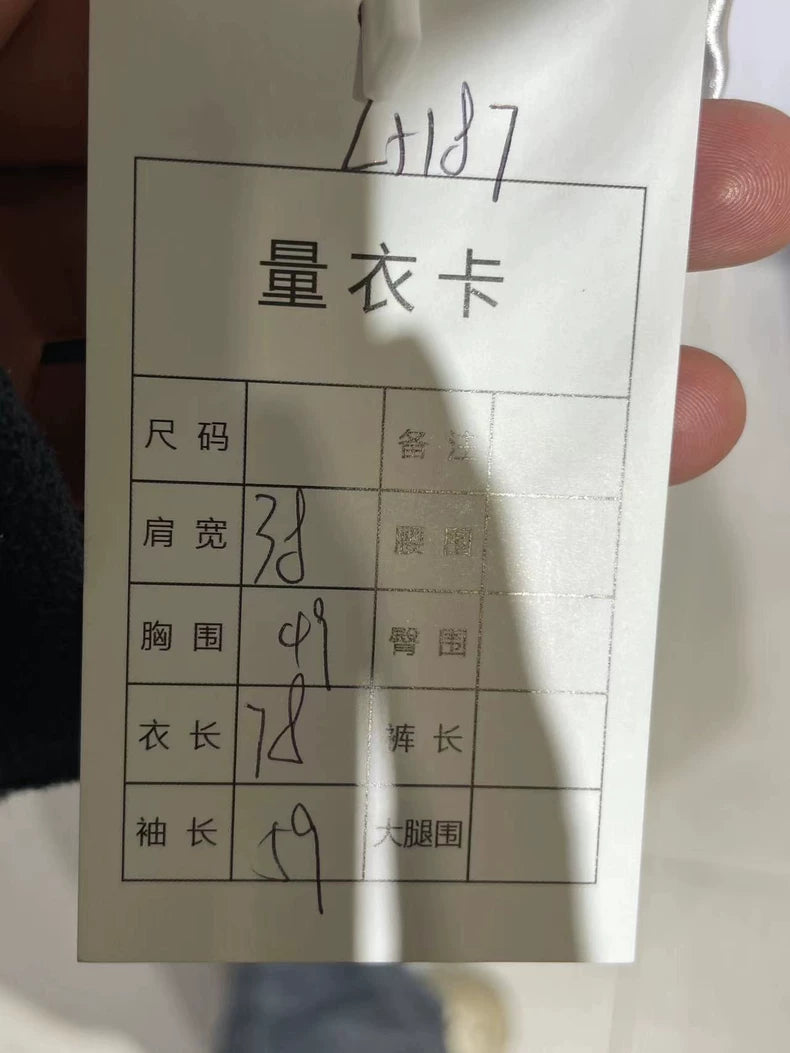 L5187
量衣卡
尺码 备注
肩宽 38 腰围
胸围 49 臀围
衣长 78 裤长
袖长 59 大腿围